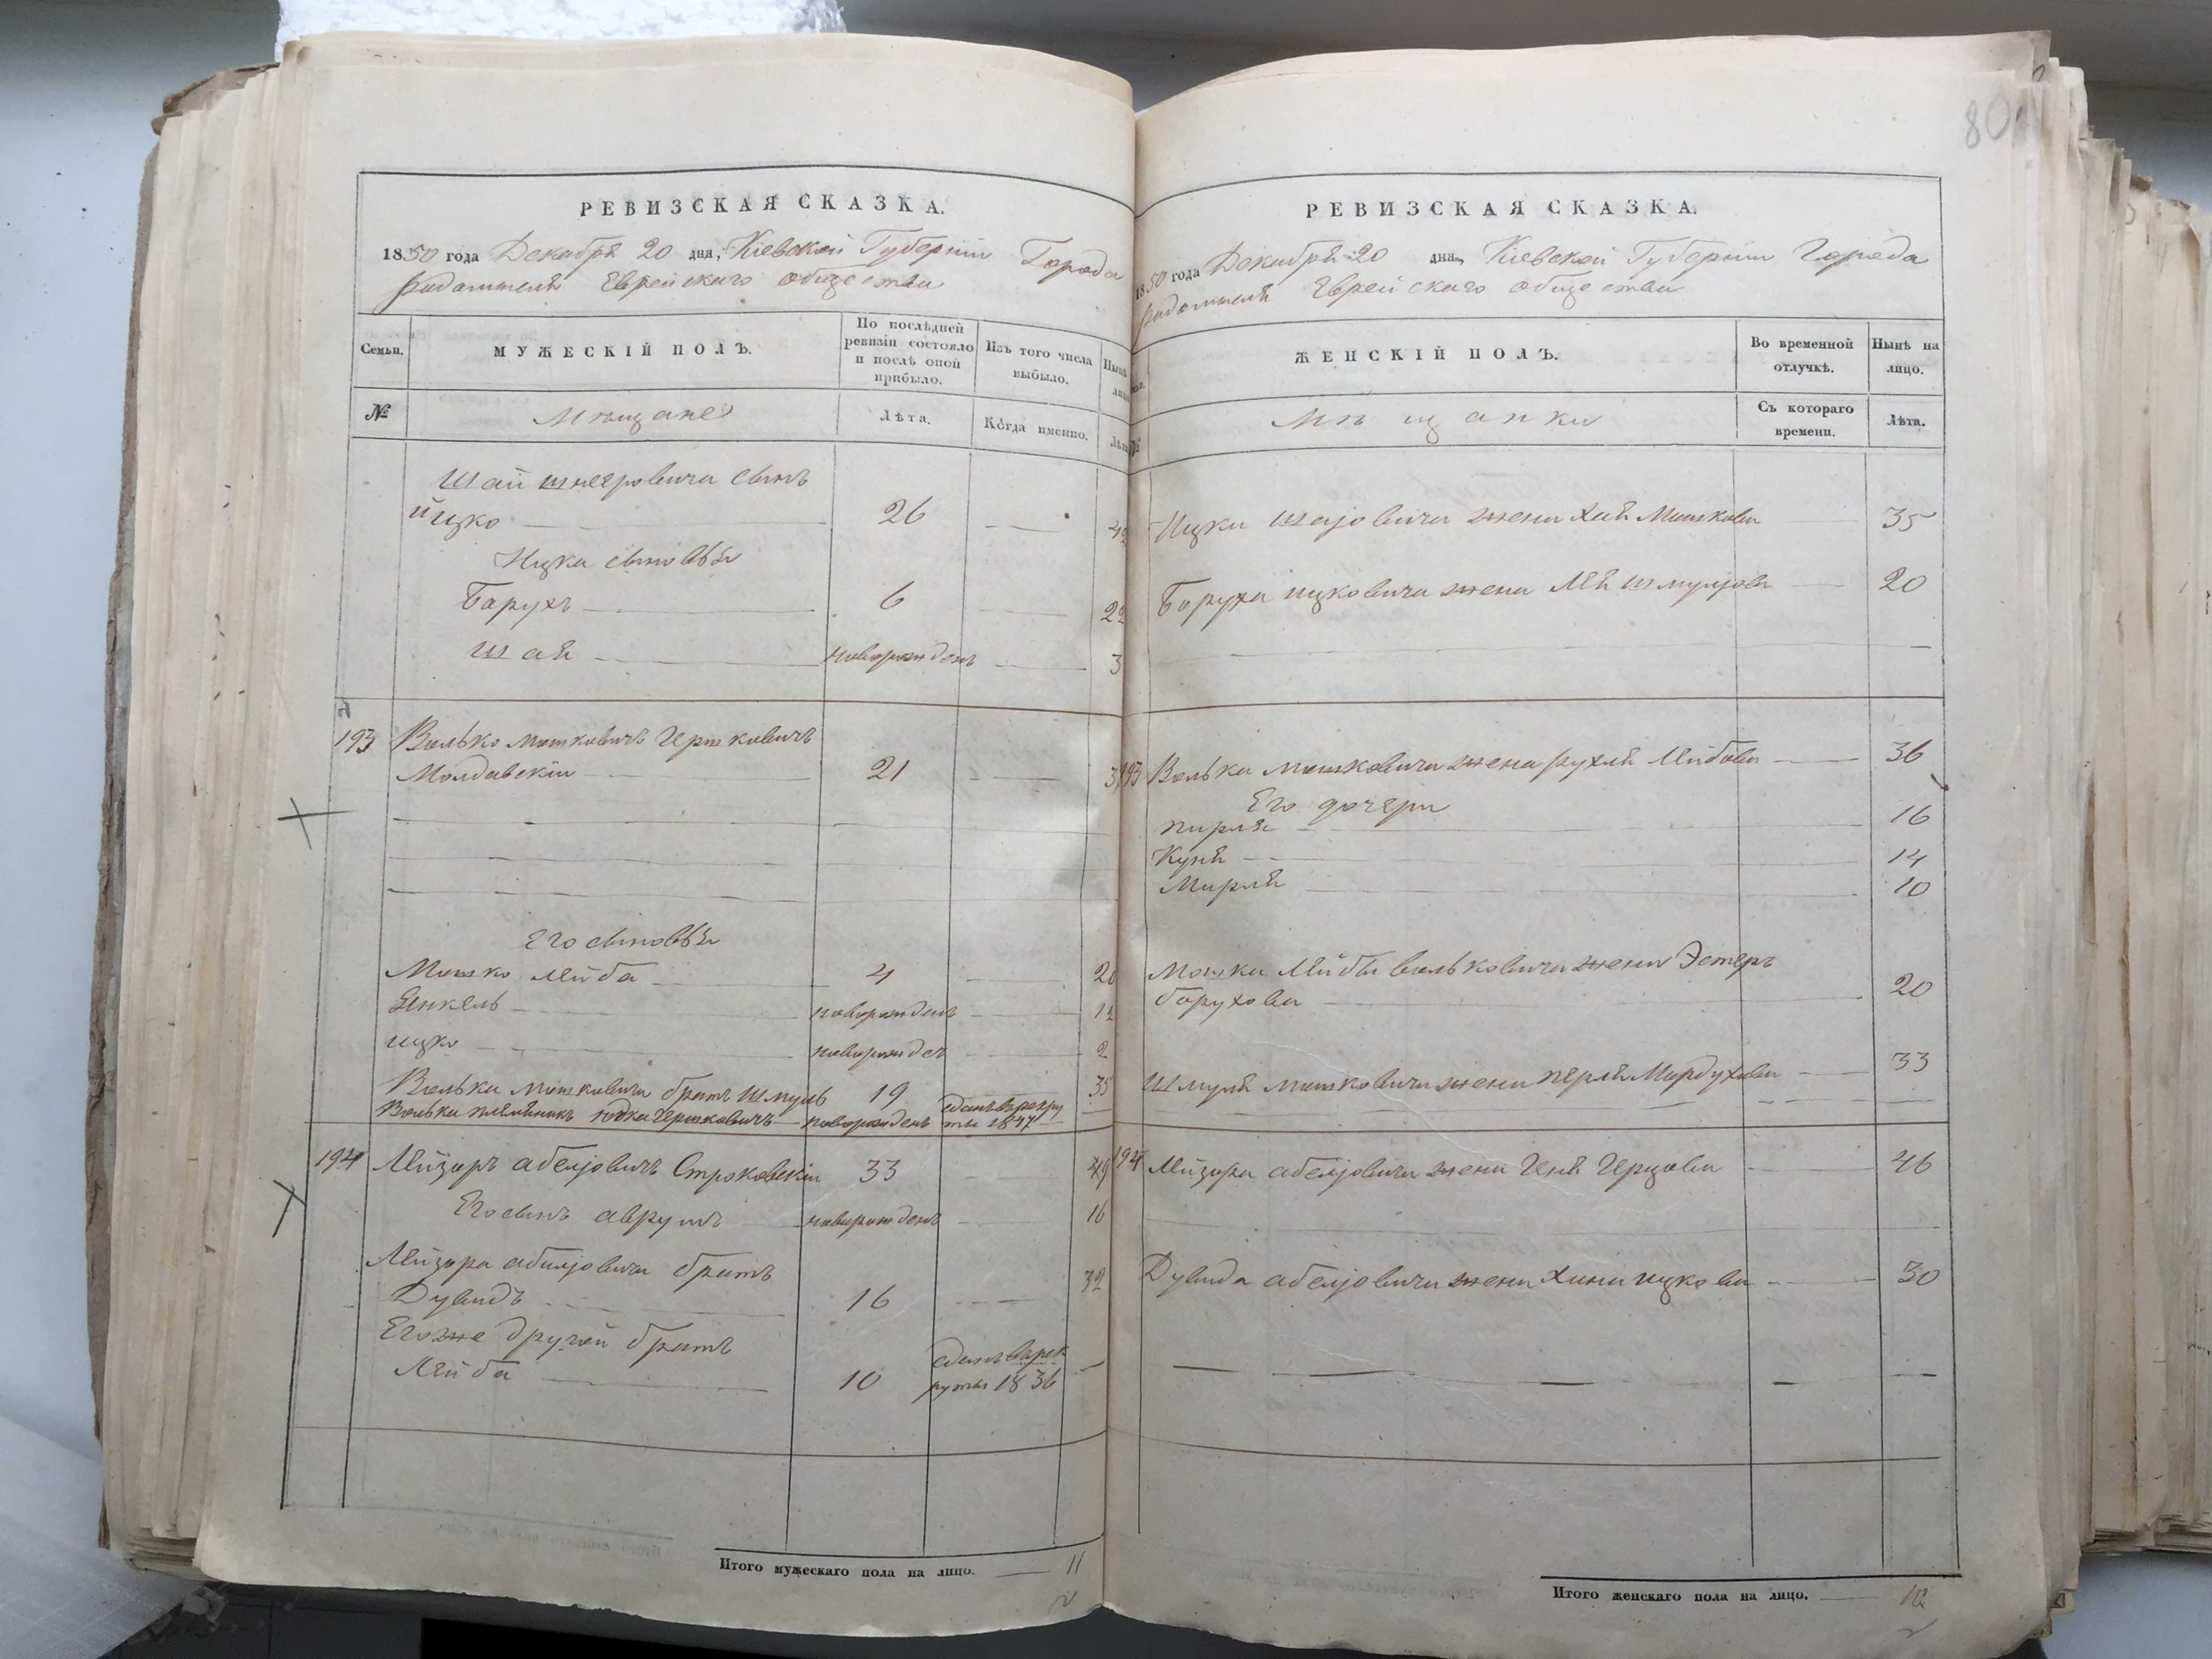 РЕВИЗСКАЯ СКАЗКА.
1850 года Декабря 20 дня, Кіевской Губерніи Города
Радомысля Еврейскаго общества
Семьи.
МУЖЕСКІЙ ПОЛЪ.
По послѣдней ревизіи состояло и послѣ оной прибыло.
Изъ того числа выбыло.
№
Мѣщане
Лѣта.
Когда именно.
Шаи Шнеровича сынъ
Ицко 26
Ицка сыновья
Барухъ 6
Шая новорожденъ 3
193 Волько Мошковичъ Гершковичъ
Молдавскій 21
Его сыновья
Мошко Лейба 4
Янкель новорожденъ
Ицко новорожден 2
Волька Мошковича братъ Шмуль 19 35
Волька племянникъ Юдка Гершковичъ новорожденъ сданъ в рекру
ты 1847
194 Лейзоръ Абелιовичъ Строковскій 33 49
Его сынъ Аврумъ новорожденъ 16
Лейзора Абелιовича братъ
Дувидъ 16 32
Его же другой братъ
Лейба 10 сданъ в рек
руты 1836
Итого мужескаго пола на лицо. 11
80
РЕВИЗСКАЯ СКАЗКА.
1850 года Декабря 20 дня, Кіевской Губерніи Города
Радомысля Еврейскаго общества
ЖЕНСКІЙ ПОЛЪ.
Во временной отлучкѣ.
Нынѣ на лицо.
Мѣщанки
Съ котораго времени.
Лѣта.
Ицки Шаιовича жена Хая Мошкова 35
Баруха Ицковича жена Лея Шмулιова 20
193 Волька Мошковича жена Рухля Лейбова 36
Его дочери
Пирля 16
Куня 14
Мирля 10
Мошка Лейбы Вольковича жена Эстеръ
Барухова 20
Шмуля Мошковича жена Перля Мордухова 33
194 Лейзора Абелιовича жена Геня Герцова 46
Дувида Абелιовича жена Хана Ицкова 30
Итого женскаго пола на лицо. 10